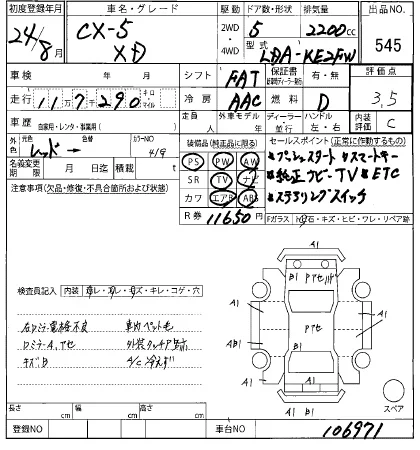 初度登録年月 車名・グレード 駆動 ドア数・形状 排気量 出品No.
24/8月 CX-5 XD 2WD・4WD 5 2200cc 545
型式 LDA-KE2FW
車検 年 月 シフト FAT 保証書 有・無 評価点
走行 11万7千290 キロ マイル 冷房 AAC 燃料 D 3.5
車歴 自家用・レンタ・事業用( ) 定員 人 外車モデル 年 ディーラー・並行 ハンドル 左・右 内装評価 C
外色 元色 レッド → 色替 カラーNO 41V
装備品(純正品に限る) セールスポイント(正常に作動するもの)
PS PW AW プッシュスタート スマートキー
名義変更期限 月 日迄 積載 t
SR TV ナビ 純正ナビ・TV ETC
注意事項(欠品・修復・不具合箇所および状態)
カワ エアB ABS ステアリングスイッチ
R券 11650円 Fガラス 飛石・キズ・ヒビ・ワレ・リペア跡
検査員記入 内装 キズ・キレ・コゲ・穴
右Dミラー電格不良 車内ペット毛
DミラーA、アセ
キズ、B A/C冷えず
A1
B1
A1 A1
Pアセ
A1 AB1 A1
A1 B1
スペア
長さ cm 幅 cm 高さ cm
登録NO 車台NO 106971